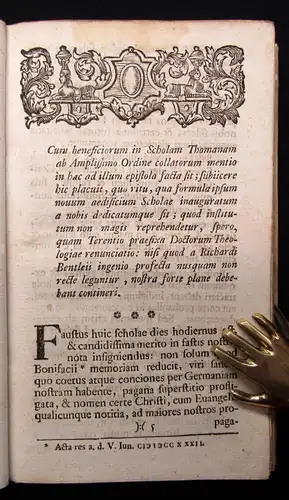 Cum beneficiorum in Scholam Thomanam
ab Amplissimo Ordine collatorum mentio
in hac ad illum epistola facta sit; subiicere
hic placuit, quo ritu, qua formula ipsum
novum aedificium Scholae inauguratum
a nobis dedicatumque sit; quod institu-
tum non magis reprehendetur, spero,
quam Terentio praefixa Doctorum Theo-
logiae renunciatio: nisi quod a Richardi
Bentleii ingenio profecta nusquam non
recte leguntur, nostra forte plane debe-
bant contineri.
* * *
Faustus huic scholae dies hodiernus
& candidissima merito in fastis nostris
nota insigniendus: non solum quod
Bonifacii * memoriam reducit, viri
quo coetus atque conciones per Germaniam
nostram habente, pagana superstitio profli-
gata, & nomen certe Christi, cum Euangelii
qualicunque notitia, ad maiores nostros pro-
):( 5 paga-
* Acta res a. d. V. Iun. CIƆIƆCCXXXII.